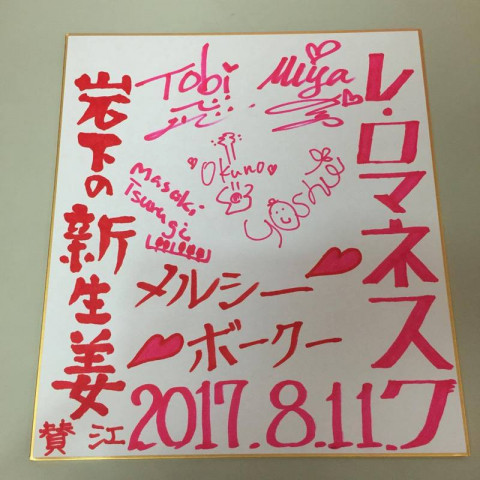 レ・ロマネスク
Tobi
Miya
Okuno
yoshie
Masaki
Tsurugi
メルシー
ボークー
岩下の新生姜
賛江
2017.8.11.